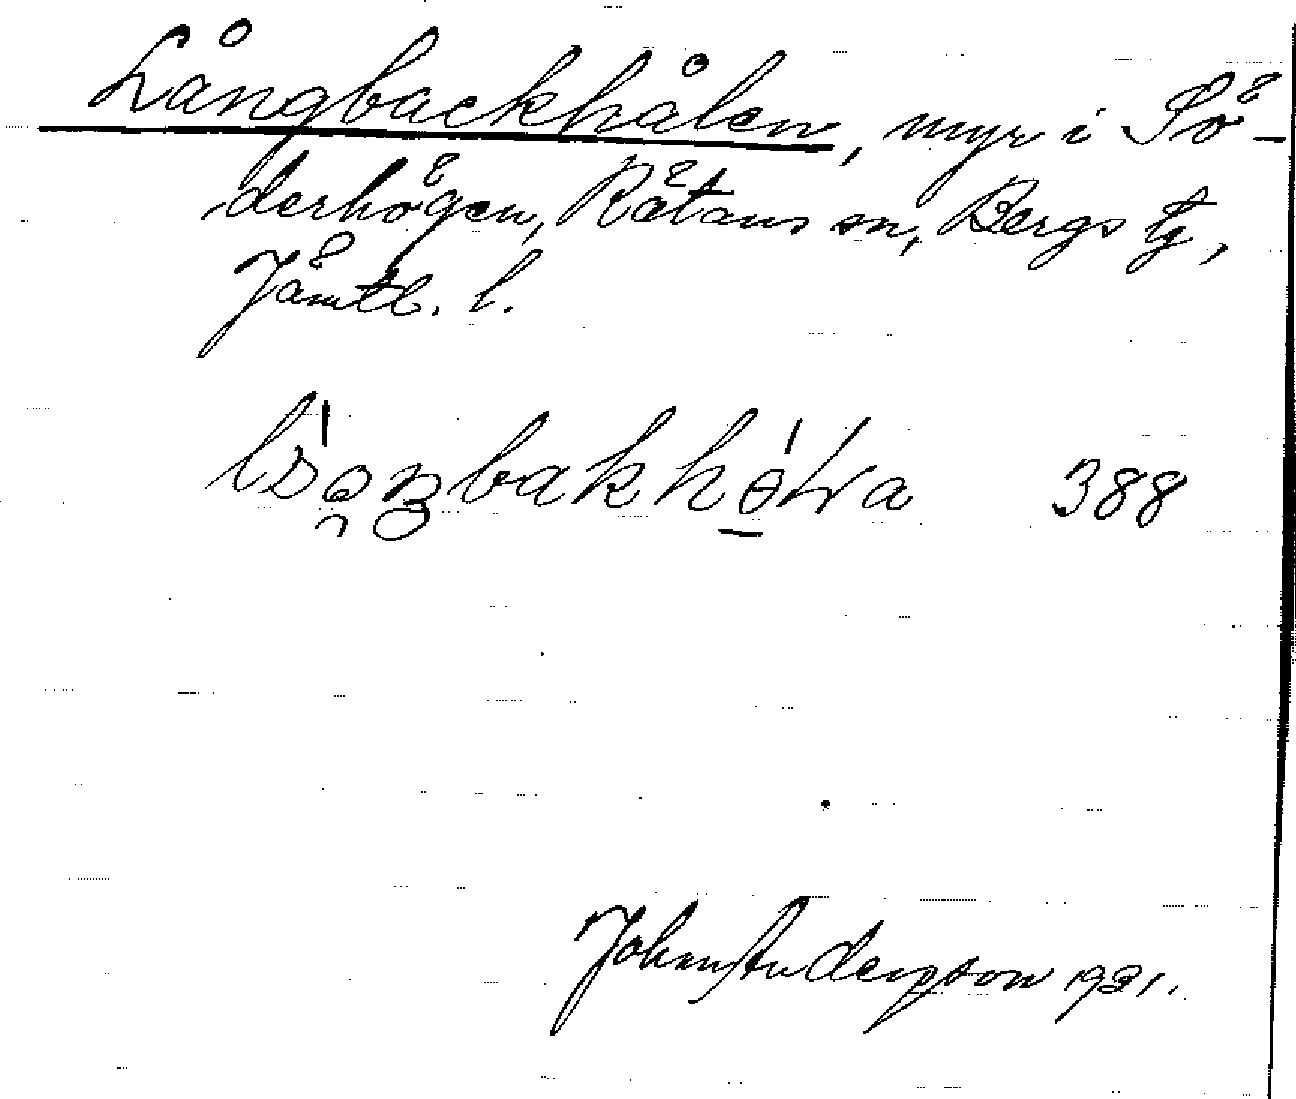 Långbackhålen, myr i Sö-
derhögen, Rätans sn, Bergs tg,
Jämtl. l.
388
John Andersson 1931.